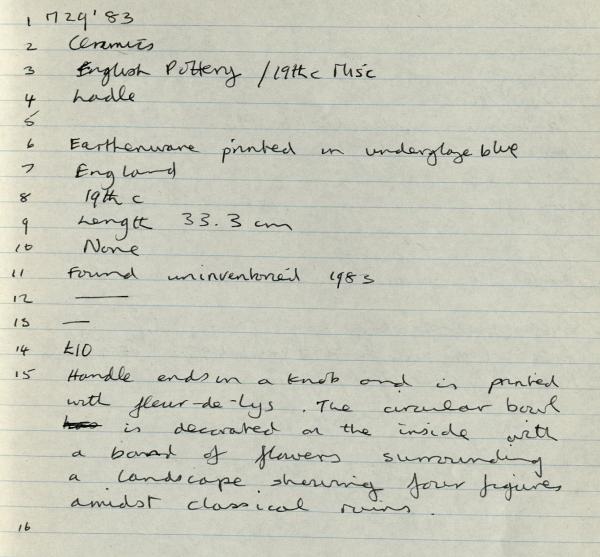 1 M29'83
2 Ceramics
3 English Pottery / 19th c Misc
4 Ladle
5
6 Earthenware printed in underglaze blue
7 England
8 19th c
9 Length 33.3 cm
10 None
11 Found uninventoried 1983
12 —
13 —
14 £10
15 Handle ends in a knob and is printed
with fleur-de-lys. The circular bowl
is decorated on the inside with
a band of flowers surrounding
a landscape showing four figures
amidst classical ruins.
16